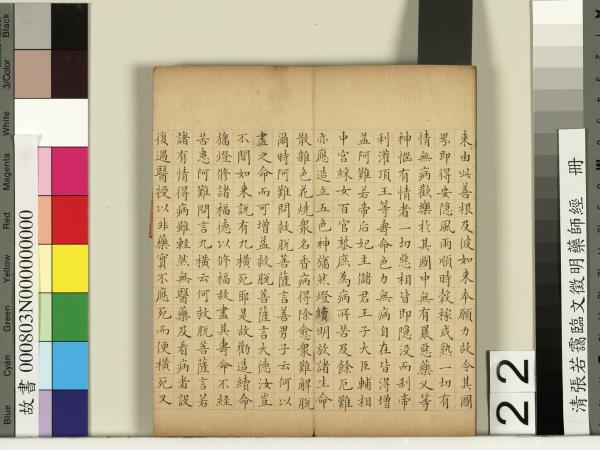 來由此善根及彼如來本願力故令其國
界即得安隱風雨順時穀稼成熟一切有
情無病歡樂於其國中無有暴惡藥叉等
神惱有情者一切惡相皆即隱沒而剎帝
利灌頂王等壽命色力無病自在皆得增
益阿難若帝后妃主儲君王子大臣輔相
中宮綵女百官黎庶為病所苦及餘厄難
亦應造立五色神旛然燈續明放諸生命
散雜色花燒眾名香病得除愈眾難解脫
爾時阿難問救脫菩薩言善男子云何以
盡之命而可增益救脫菩薩言大德汝豈
不聞如來說有九橫死耶是故勸造續命
旛燈修諸福德以修福故盡其壽命不經
苦患阿難問言九橫云何救脫菩薩言若
諸有情得病雖輕然無醫藥及看病者設
復遇醫授以非藥實不應死而便橫死又
清張若靄臨文徵明藥師經 冊
22
故書 000803N000000000
Black
3/Color
White
Magenta
Red
Yellow
Green
Cyan
Blue